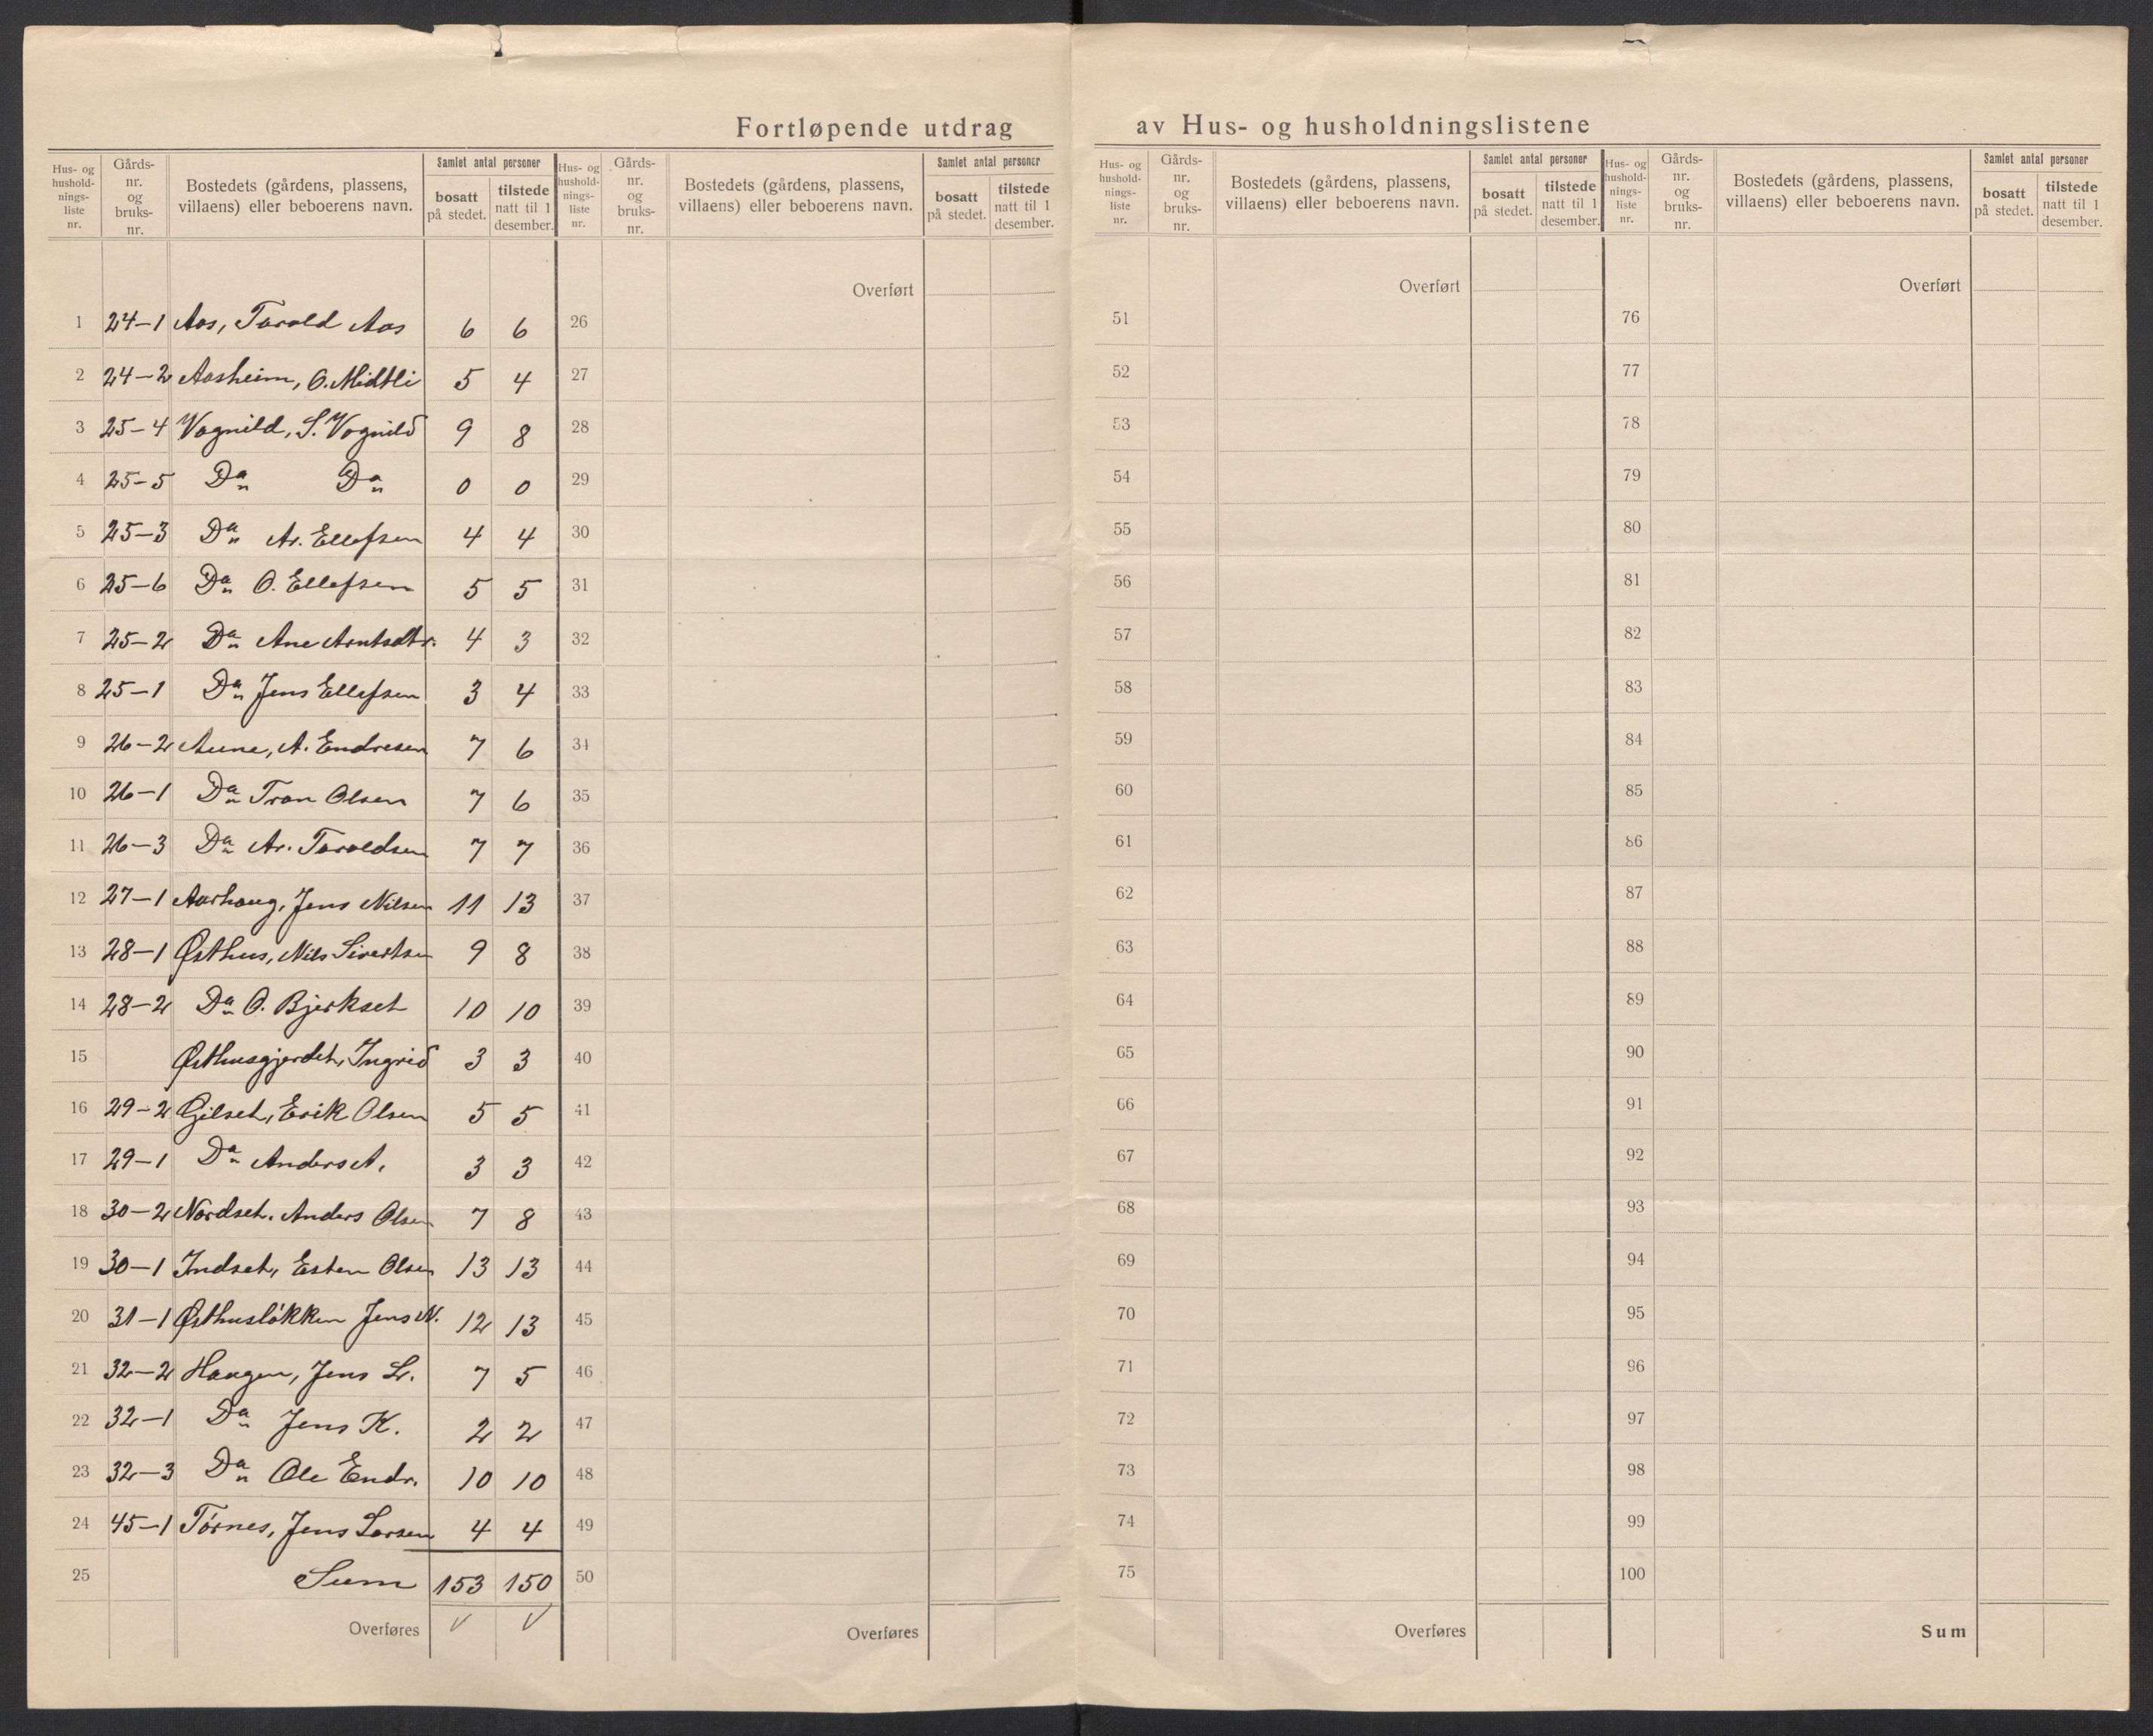 Fortløpende utdrag av Hus- og husholdningslistene
Hus- og hushold-nings-liste nr. Gårds-nr. og bruks-nr. Bostedets (gårdens, plassens, villaens) eller beboerens navn. Samlet antal personer bosatt på stedet. tilstede natt til 1 desember.
Hus- og hushold-nings-liste nr. Gårds-nr. og bruks-nr. Bostedets (gårdens, plassens, villaens) eller beboerens navn. Samlet antal personer bosatt på stedet. tilstede natt til 1 desember.
Hus- og hushold-nings-liste nr. Gårds-nr. og bruks-nr. Bostedets (gårdens, plassens, villaens) eller beboerens navn. Samlet antal personer bosatt på stedet. tilstede natt til 1 desember.
Hus- og hushold-nings-liste nr. Gårds-nr. og bruks-nr. Bostedets (gårdens, plassens, villaens) eller beboerens navn. Samlet antal personer bosatt på stedet. tilstede natt til 1 desember.
Overført Overført Overført
1 24-1 Aas, Torold Aas 6 6 26 51 76
2 24-2 Aasheim, O. Midtli 5 4 27 52 77
3 25-4 Vognild, S. Vognild 9 8 28 53 78
4 25-5 Do Do 0 0 29 54 79
5 25-3 Do Ar. Ellefsen 4 4 30 55 80
6 25-6 Do O. Ellefsen 5 5 31 56 81
7 25-2 Do Ane Arntsdtr. 4 3 32 57 82
8 25-1 Do Jens Ellefsen 3 4 33 58 83
9 26-2 Aune, A. Endresen 7 6 34 59 84
10 26-1 Do Tron Olsen 7 6 35 60 85
11 26-3 Do Ar. Toroldsen 7 7 36 61 86
12 27-1 Aarhaug, Jens Nilsen 11 13 37 62 87
13 28-1 Østhus, Nils Sivertsen 9 8 38 63 88
14 28-2 Do O. Bjerkset 10 10 39 64 89
15 Østhusgjerdet, Ingrid 3 3 40 65 90
16 29-2 Gilset, Erik Olsen 5 5 41 66 91
17 29-1 Do Anders A. 3 3 42 67 92
18 30-2 Nordset, Anders Olsen 7 8 43 68 93
19 30-1 Indset, Esten Olsen 13 13 44 69 94
20 31-1 Østhusløkken Jens N. 12 13 45 70 95
21 32-2 Haugen, Jens L. 7 5 46 71 96
22 32-1 Do Jens K. 2 2 47 72 97
23 32-3 Do Ole Endr. 10 10 48 73 98
24 45-1 Tørnes, Jens Larsen 4 4 49 74 99
25 Sum 153 150 50 75 100
Overføres Overføres Overføres Sum